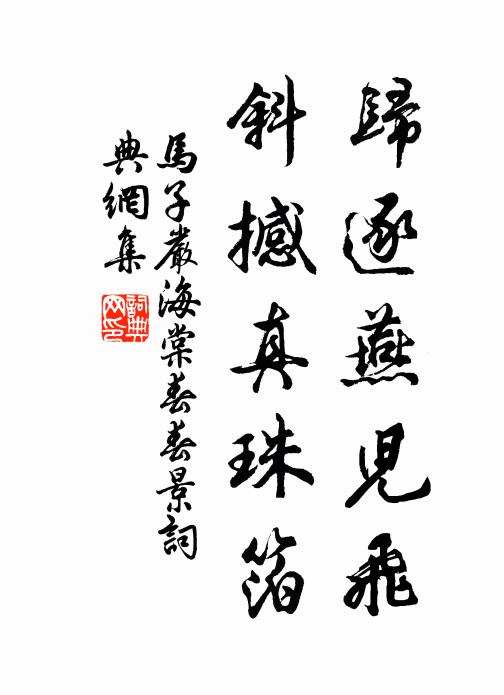 歸逐燕兒飛
斜撼真珠箔
馬子嚴海棠春春景詞
典網集
詞典網印